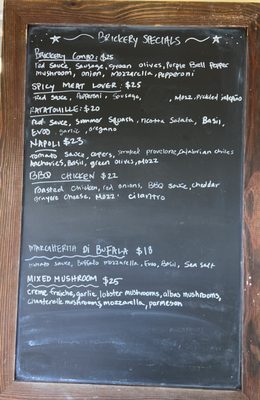 BRICKERY SPECIALS
BRICKERY COMBO: $25
red sauce, sausage, green olives, Purple Bell Pepper
mushroom, onion, mozzarella, Pepperoni
SPICY MEAT LOVER: $25
Red sauce, Pepperoni, Sausage, , MOZZ, Pickled jalapeño
RATATOUILLE: $20
Red sauce, summer squash, ricotta salata, Basil,
EVOO garlic, oregano
NAPOLI $23
tomato sauce, capers, smoked provolone, calabrian chiles
anchovies, Basil, green olives, MOZZ
BBQ CHICKEN $22
roasted chicken, red onions, BBQ sauce, cheddar
gruyere cheese, MOZZ cilantro
MARGHERITA DI BUFALA $18
tomato sauce, Buffalo mozzarella, Evoo, Basil, Sea salt
MIXED MUSHROOM $25
creme fraiche, garlic, lobster mushrooms, albas mushrooms,
chanterelle mushrooms, mozzarella, parmesan